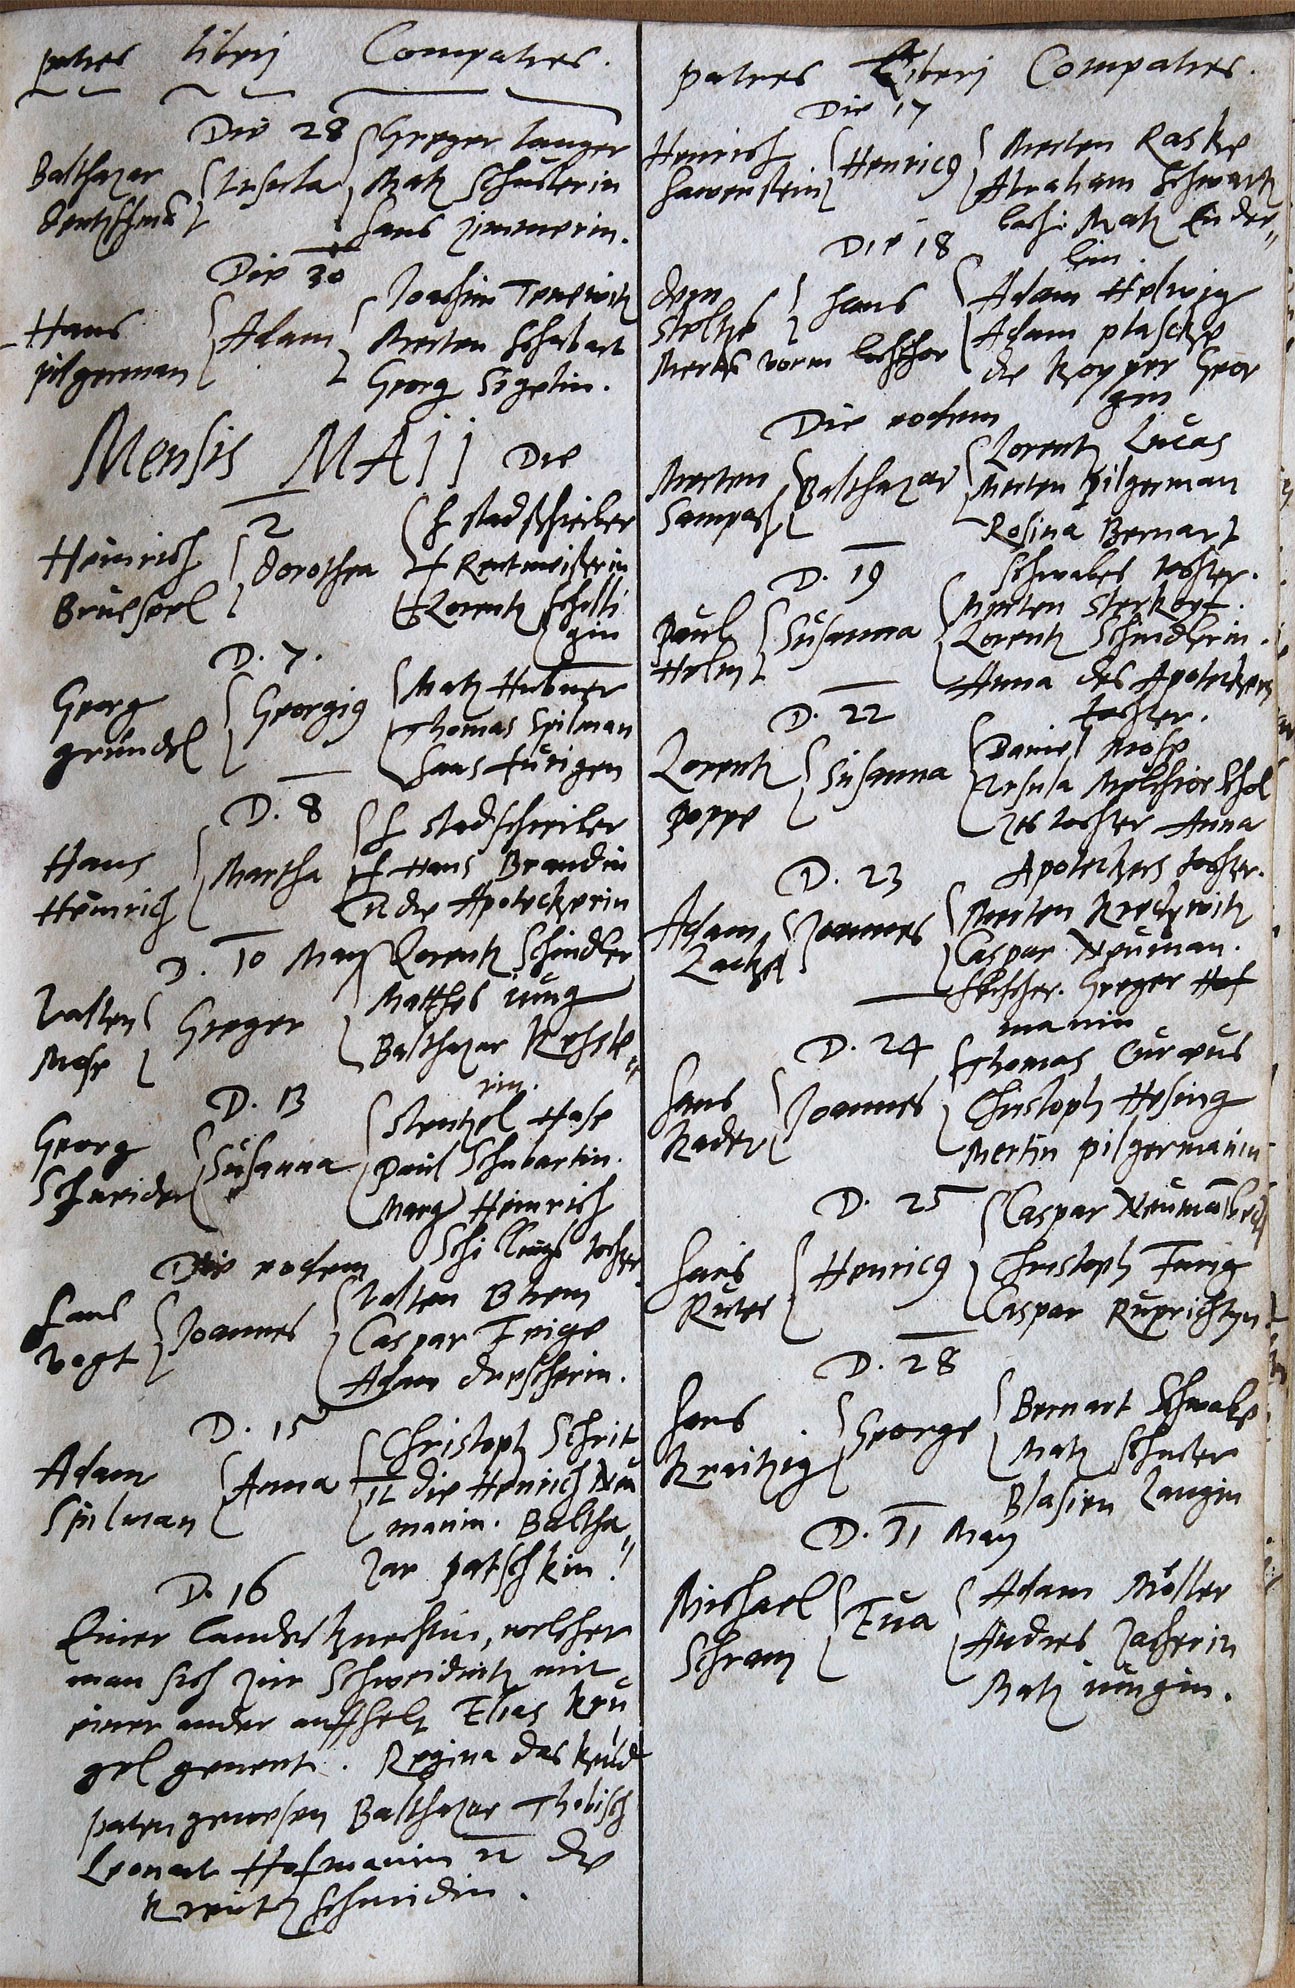 patres liberj Compatres.
Die 28
Balthazar
Ursula
Greger Langer
Matz Schusterin
Hans Zimmerin.
Die 30
Hans
pilgerman
Adam
Joachim
Merten Schubart
Georg Sigelin.
Mensis MAIj Die
2
Heinrich
Dorothea
H stadschreiber
H Rentmeisterin
H Lorentz Scholti
gin
D. 7.
Georg
gründel
Georgig
Matz Hubner
Thomas Spilman
Hans
D. 8
Hans
Heinrich
Martha
H stadschreiber
H Hans Brandin
die Apoteckerin
D. 10 May
Valten
Mose
Greger
Lorentz Schindler
Matthes jung
Balthazar
rin.
D. 13
Georg
Schneider
Susanna
Stentzel Hase
Paul Schubartin.
Marg Heinrich
Schillings tochter
Die eodem
Hans
Vogt
Joannes
Valten
Caspar
Adam drescherin.
D. 15
Adam
Spilman
Anna
Christoph
die Henrich Neu
manin. Baltha„
zar patschkin.
D. 16
Einer Landsknechtin, welcher
man sich zur Schweidnitz mit
einer ander auffhelt Elias Krü
gel genent. Regina das kind
paten gewesen Balthazar Thobisch
Leonart Hofmanin die
Kreutzschmidin.
patres Liberj Compatres.
Die 17
Heinrich
Henricg
Merten Raske
Abraham Schwartz
Matz Ender„
lin
Die 18
Stoltze
Hans
Adam Helwig
Adam plaschke
die Geor
gin
Die eodem
Merten
Balthazar
Lorentz Lucas
Merten Pilgerman
Rosina Bernart
Schwabes tochter.
D. 19
Paul
Helm
Susanna
Merten
Lorentz Schindlerin.
Anna des Apoteckers
tochter.
D. 22
Lorentz
Poppe
Susanna
Daniel Mose
Ursula Melchior Schol
zes tochter Anna
Apoteckers tochter.
D. 23
Adam
Joannes
Merten
Caspar Neuman.
Greger Hof
manin
D. 24
Hans
Joannes
Thomas Curaeus
Christoph Hesing
Mertin pilgermanin
D. 25
Hans
Rüter
Henricg
Caspar
Christoph
Caspar Ruprichtyn
D. 28
Hans
Kraitzig
George
Bernart Schwabe
Matz Schuster
Blasien Langin
D. 31 May
Michael
Schram
Eua
Adam Möller
Andres
Matz jungin.